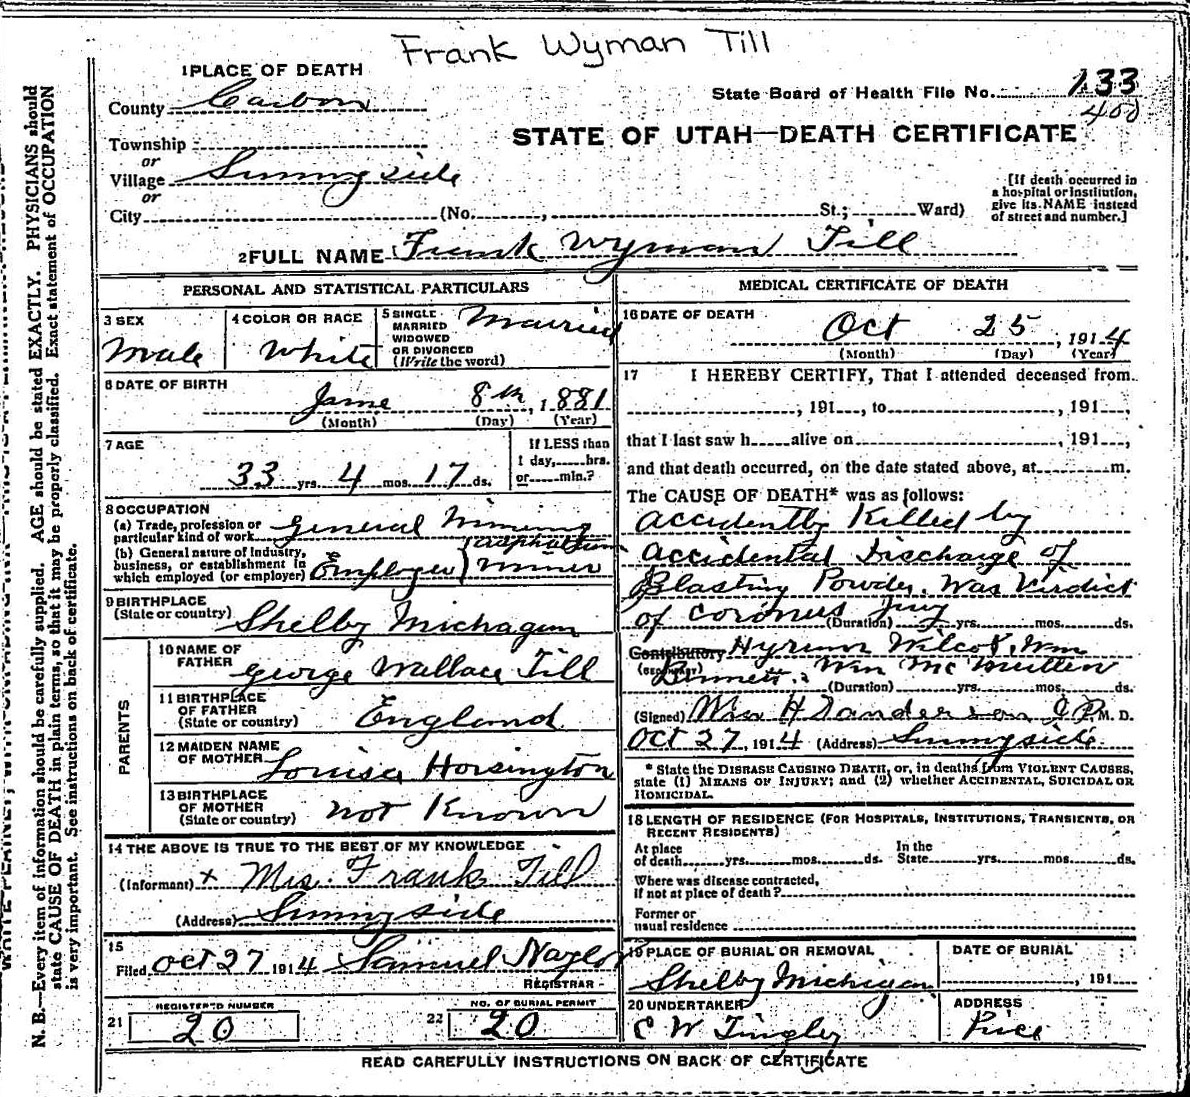 Frank Wyman Till
1 PLACE OF DEATH
County Carbon
State Board of Health File No. 133
400
Township
or
STATE OF UTAH—DEATH CERTIFICATE
Village Sunnyside
or
City (No. , St.; Ward)
[If death occurred in
a hospital or institution,
give its NAME instead
of street and number.]
2 FULL NAME Frank Wyman Till
PERSONAL AND STATISTICAL PARTICULARS
3 SEX
Male
4 COLOR OR RACE
White
5 SINGLE
MARRIED
WIDOWED
OR DIVORCED
(Write the word)
Married
6 DATE OF BIRTH
June 8th, 1881
(Month) (Day) (Year)
7 AGE
33 yrs. 4 mos. 17 ds.
If LESS than
1 day, hrs.
or min.?
8 OCCUPATION
(a) Trade, profession or
particular kind of work General Mining
(b) General nature of Industry,
business, or establishment in
which employed (or employer) Employer) Miner
(asphaltum
9 BIRTHPLACE
(State or country) Shelby Michagan
PARENTS
10 NAME OF
FATHER George Wallace Till
11 BIRTHPLACE
OF FATHER
(State or country) England
12 MAIDEN NAME
OF MOTHER Louisa Horsington
13 BIRTHPLACE
OF MOTHER
(State or country) not Known
14 THE ABOVE IS TRUE TO THE BEST OF MY KNOWLEDGE
(Informant) x Mrs. Frank Till
(Address) Sunnyside
15
Filed Oct 27 1914 Samuel Naylor
REGISTRAR
REGISTERED NUMBER
21 20
NO. OF BURIAL PERMIT
22 20
MEDICAL CERTIFICATE OF DEATH
16 DATE OF DEATH
Oct 25, 1914
(Month) (Day) (Year)
17 I HEREBY CERTIFY, That I attended deceased from
, 191 , to , 191 ,
that I last saw h alive on , 191 ,
and that death occurred, on the date stated above, at m.
The CAUSE OF DEATH* was as follows:
accidently Killed by
accidental Discharge of
Blasting Powder. Was Virdict
of coroners Jury
(Duration) yrs. mos. ds.
Contributory Hyrum Wilcox, Wm
(SECONDARY) Bennett. Wm McMullen
(Duration) yrs. mos. ds.
(Signed) Wm H Sanderson J.P. M. D.
Oct 27, 1914 (Address) Sunnyside.
* State the DISEASE CAUSING DEATH, or, in deaths from VIOLENT CAUSES,
state (1) MEANS OF INJURY; and (2) whether ACCIDENTAL, SUICIDAL OR
HOMICIDAL.
18 LENGTH OF RESIDENCE (FOR HOSPITALS, INSTITUTIONS, TRANSIENTS, OR
RECENT RESIDENTS)
At place
of death yrs. mos. ds.
In the
State yrs. mos. ds.
Where was disease contracted,
if not at place of death?
Former or
usual residence
19 PLACE OF BURIAL OR REMOVAL
Shelby Michigan
DATE OF BURIAL
, 191
20 UNDERTAKER
C W Tingley
ADDRESS
Price
READ CAREFULLY INSTRUCTIONS ON BACK OF CERTIFICATE
N. B.—Every item of information should be carefully supplied. AGE should be stated EXACTLY. PHYSICIANS should
state CAUSE OF DEATH in plain terms, so that it may be properly classified. Exact statement of OCCUPATION
is very important. See instructions on back of certificate.